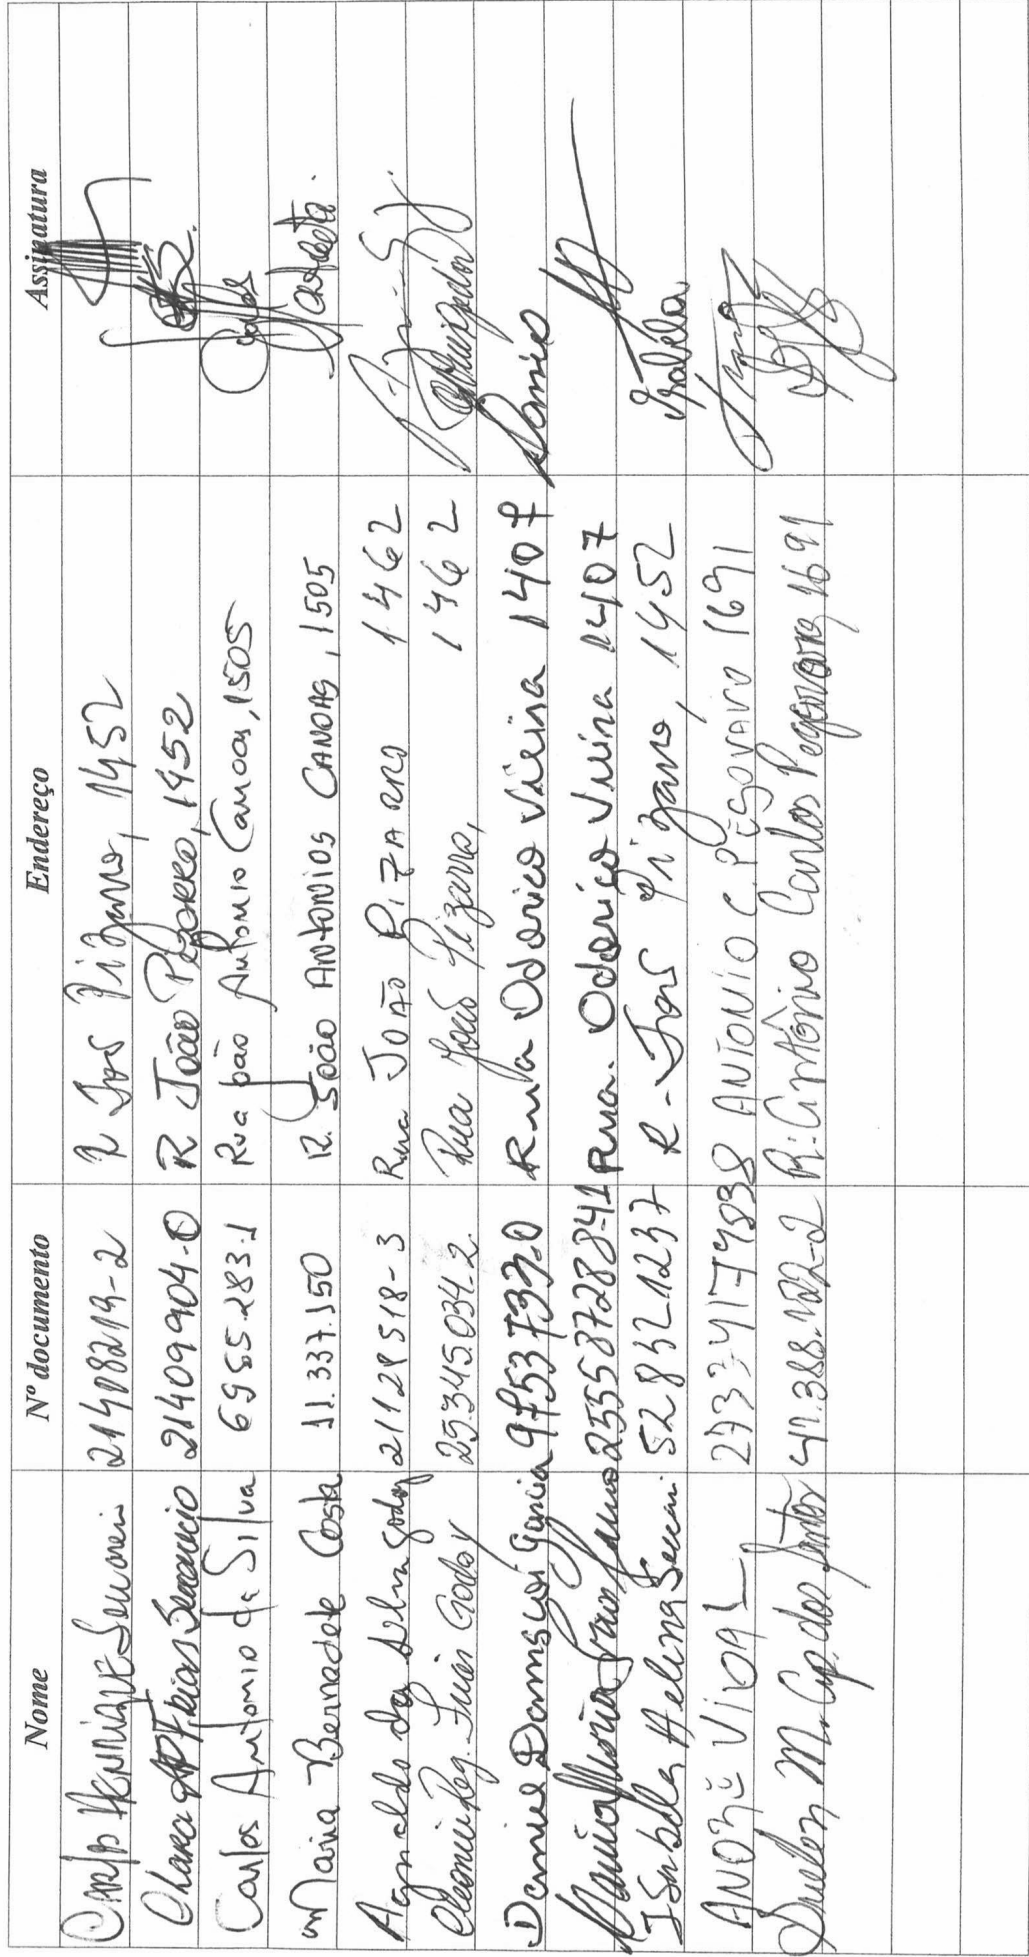 Nome Nº documento Endereço Assinatura
Carlos Henrique 21408219-2 R João Pizarro, 1452
Chara AP Frias 21409904-0 R João Pizarro, 1452
Carlos Antonio da Silva 6965.283.1 Rua João Antonio Canoas, 1505 Carlos
Maria Bernadete Costa 11.337.150 R. João Antonios CANOAS, 1505
Agnaldo da Silva Godoy 21129518-3 Rua JOÃO PIZARRO 1462
Cleonir Reg. Luis Godoy 25.345.034-2 Rua João Pizarro, 1462
Daniel Damas Garcia 9753733.0 Rua Odorico Vieira 1407
Maria 25558728841 Rua. Odorico Vieira 1407
Isabela Helena 52.832.123-7 R - João Pizarro, 1452 Isabela
ANDRÉ VIDAL 27334179838 ANTONIO C. PEGORARO 1691
Suelen M. Cp. dos Santos 41.388.122-2 R: Antônio Carlos Pegoraro, 1691